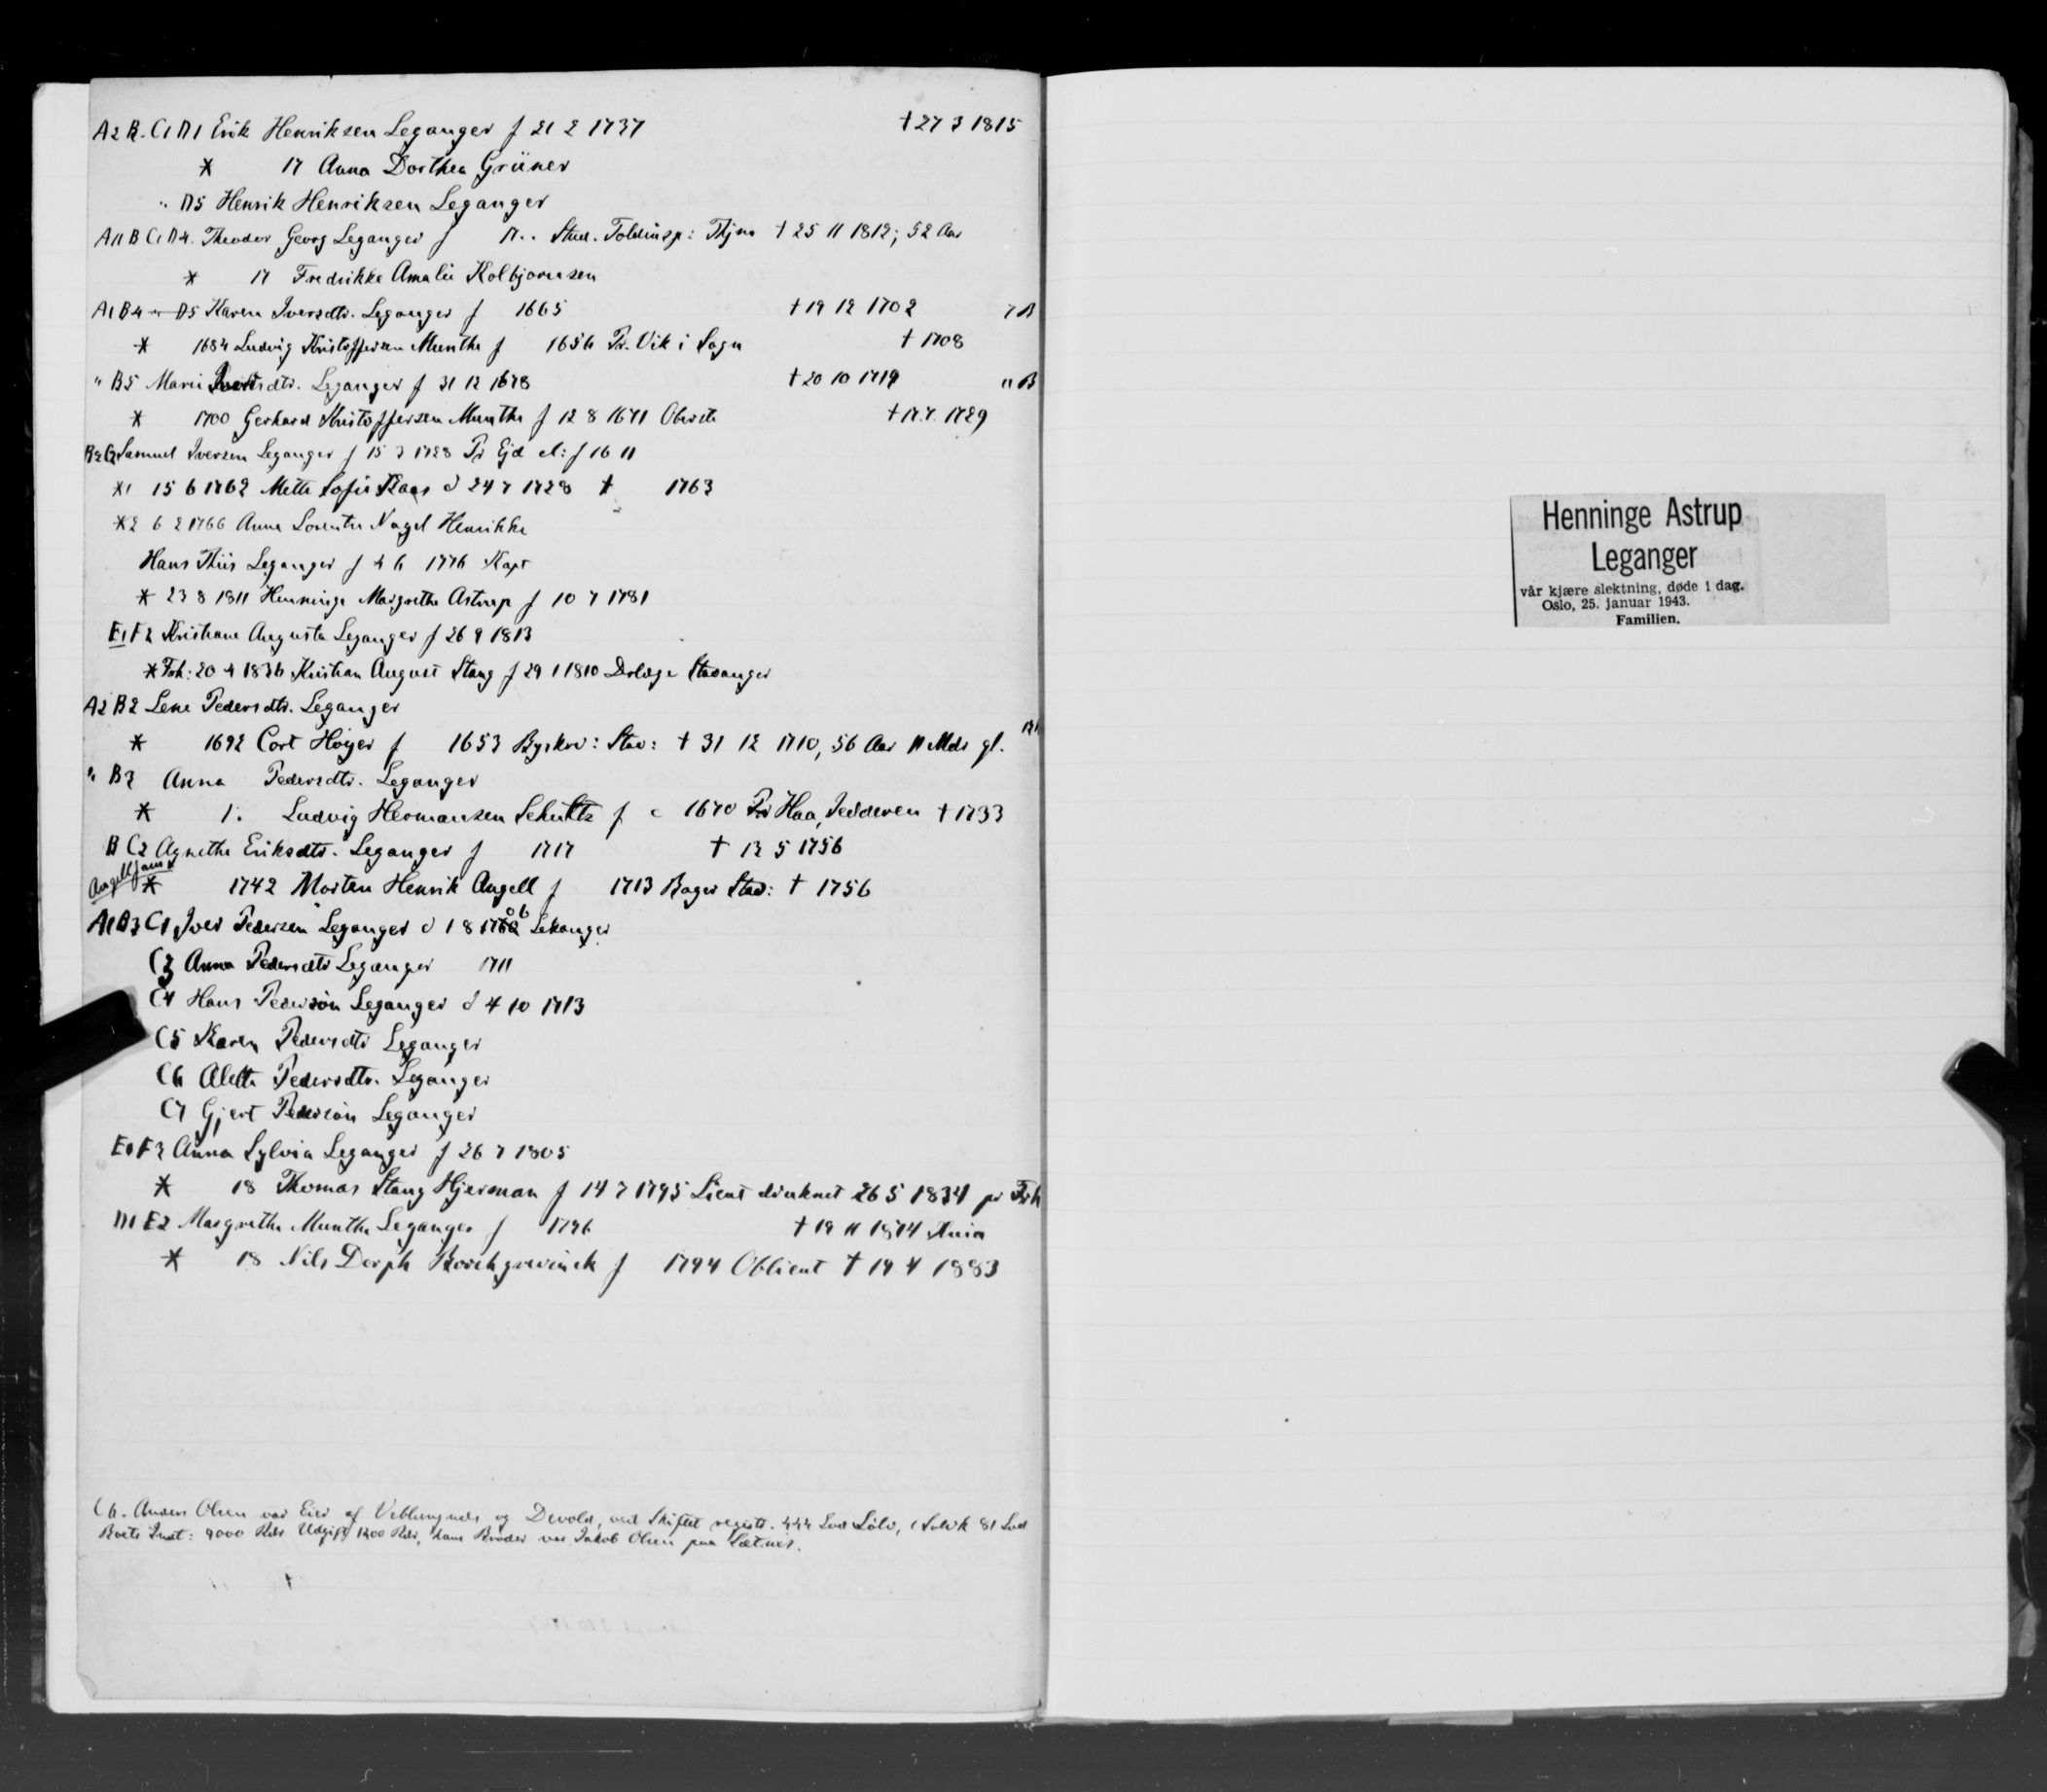 A2 B. C1 D1 Erik Henriksen Leganger f 21 2 1737 † 27 3 1815
* 17 Anna Dorthea Grüner
" D5 Henrik Henriksen Leganger
A11 B C1 D4. Theodor Georg Leganger f 17.. Stud. Toldinsp: Thjm † 25 11 1812; 52 Aar
* 17 Fredrikke Amalie Kolbjørnsen
A1 B4 D5 Karen Iversdtr. Leganger f 1665 † 19 12 1702 7 B
* 1684 Ludvig Kristoffersen Munthe f 1656 Pr. Vik i Sogn † 1708
" B5 Marie Iversdtr. Leganger f 31 12 1678 † 20 10 1719 11 B
* 1700 Gerhard Kristoffersen Munthe f 12 8 1671 Oberste † 17.7. 1729
B2 C2 Samuel Iversen Leganger f 15 3 1728 Pr Ejd el: f 16 11
*1 15 6 1762 Mette Sofie Kaas d 24 7 1728 † 1763
*2 6 2 1766 Anna Lorentze Nagel Henrikke
Hans Thiis Leganger f 4 6 1776 Kapt
* 23 8 1811 Henninge Margrethe Astrup f 10 7 1781
E1 F2 Kristiane Augusta Leganger f 26 9 1813
* Frh: 20 4 1836 Kristian August Stang f 29 1 1810 Drlæge Stavanger
A2 B2 Lene Pedersdtr. Leganger
* 1692 Cort Høyer f 1653 Byskrv: Stav: † 31 12 1710, 56 Aar 11 Mdr gl.
" B3 Anna Pedersdtr. Leganger
* 1. Ludvig Hermansen Schultz f c 1670 Pr Haa, Jædderen † 1733
B C2 Agnethe Eriksdtr. Leganger f 1717 † 12 5 1756
Angell fam *
* 1742 Morten Henrik Angell f 1713 Bager Stav: † 1756
A1 B3 C1 Iver Pedersen Leganger d 1 8 1706 Lekanger
C3 Anna Pedersdtr Leganger 1711
C4 Hans Pedersøn Leganger d 4 10 1713
C5 Karen Pedersdtr Leganger
C6 Alette Pedersdtr. Leganger
C7 Gjert Pedersøn Leganger
E1 F3 Anna Sylvia Leganger f 26 7 1805
* 18 Thomas Stang Hjerman f 14 7 1795 Lieut druknet 26 5 1834 pr Frh
D1 E2 Margrethe Munthe Leganger f 1796 † 19 11 1874
* 18 Nils Dorph Borchgrevinck f 1794 Oblieut † 19 4 1883
C6. Anders Olsen var Eier af Veblungnæs og Devold, ved Skiftet registr. 444 Lod Sølv, 81 Lod
Boets Indt: 9000 Rdr Udgift 1200 Rdr, hans Broder var Jakob Olsen paa Sætnes.
Henninge Astrup
Leganger
vår kjære slektning, døde i dag.
Oslo, 25. januar 1943.
Familien.